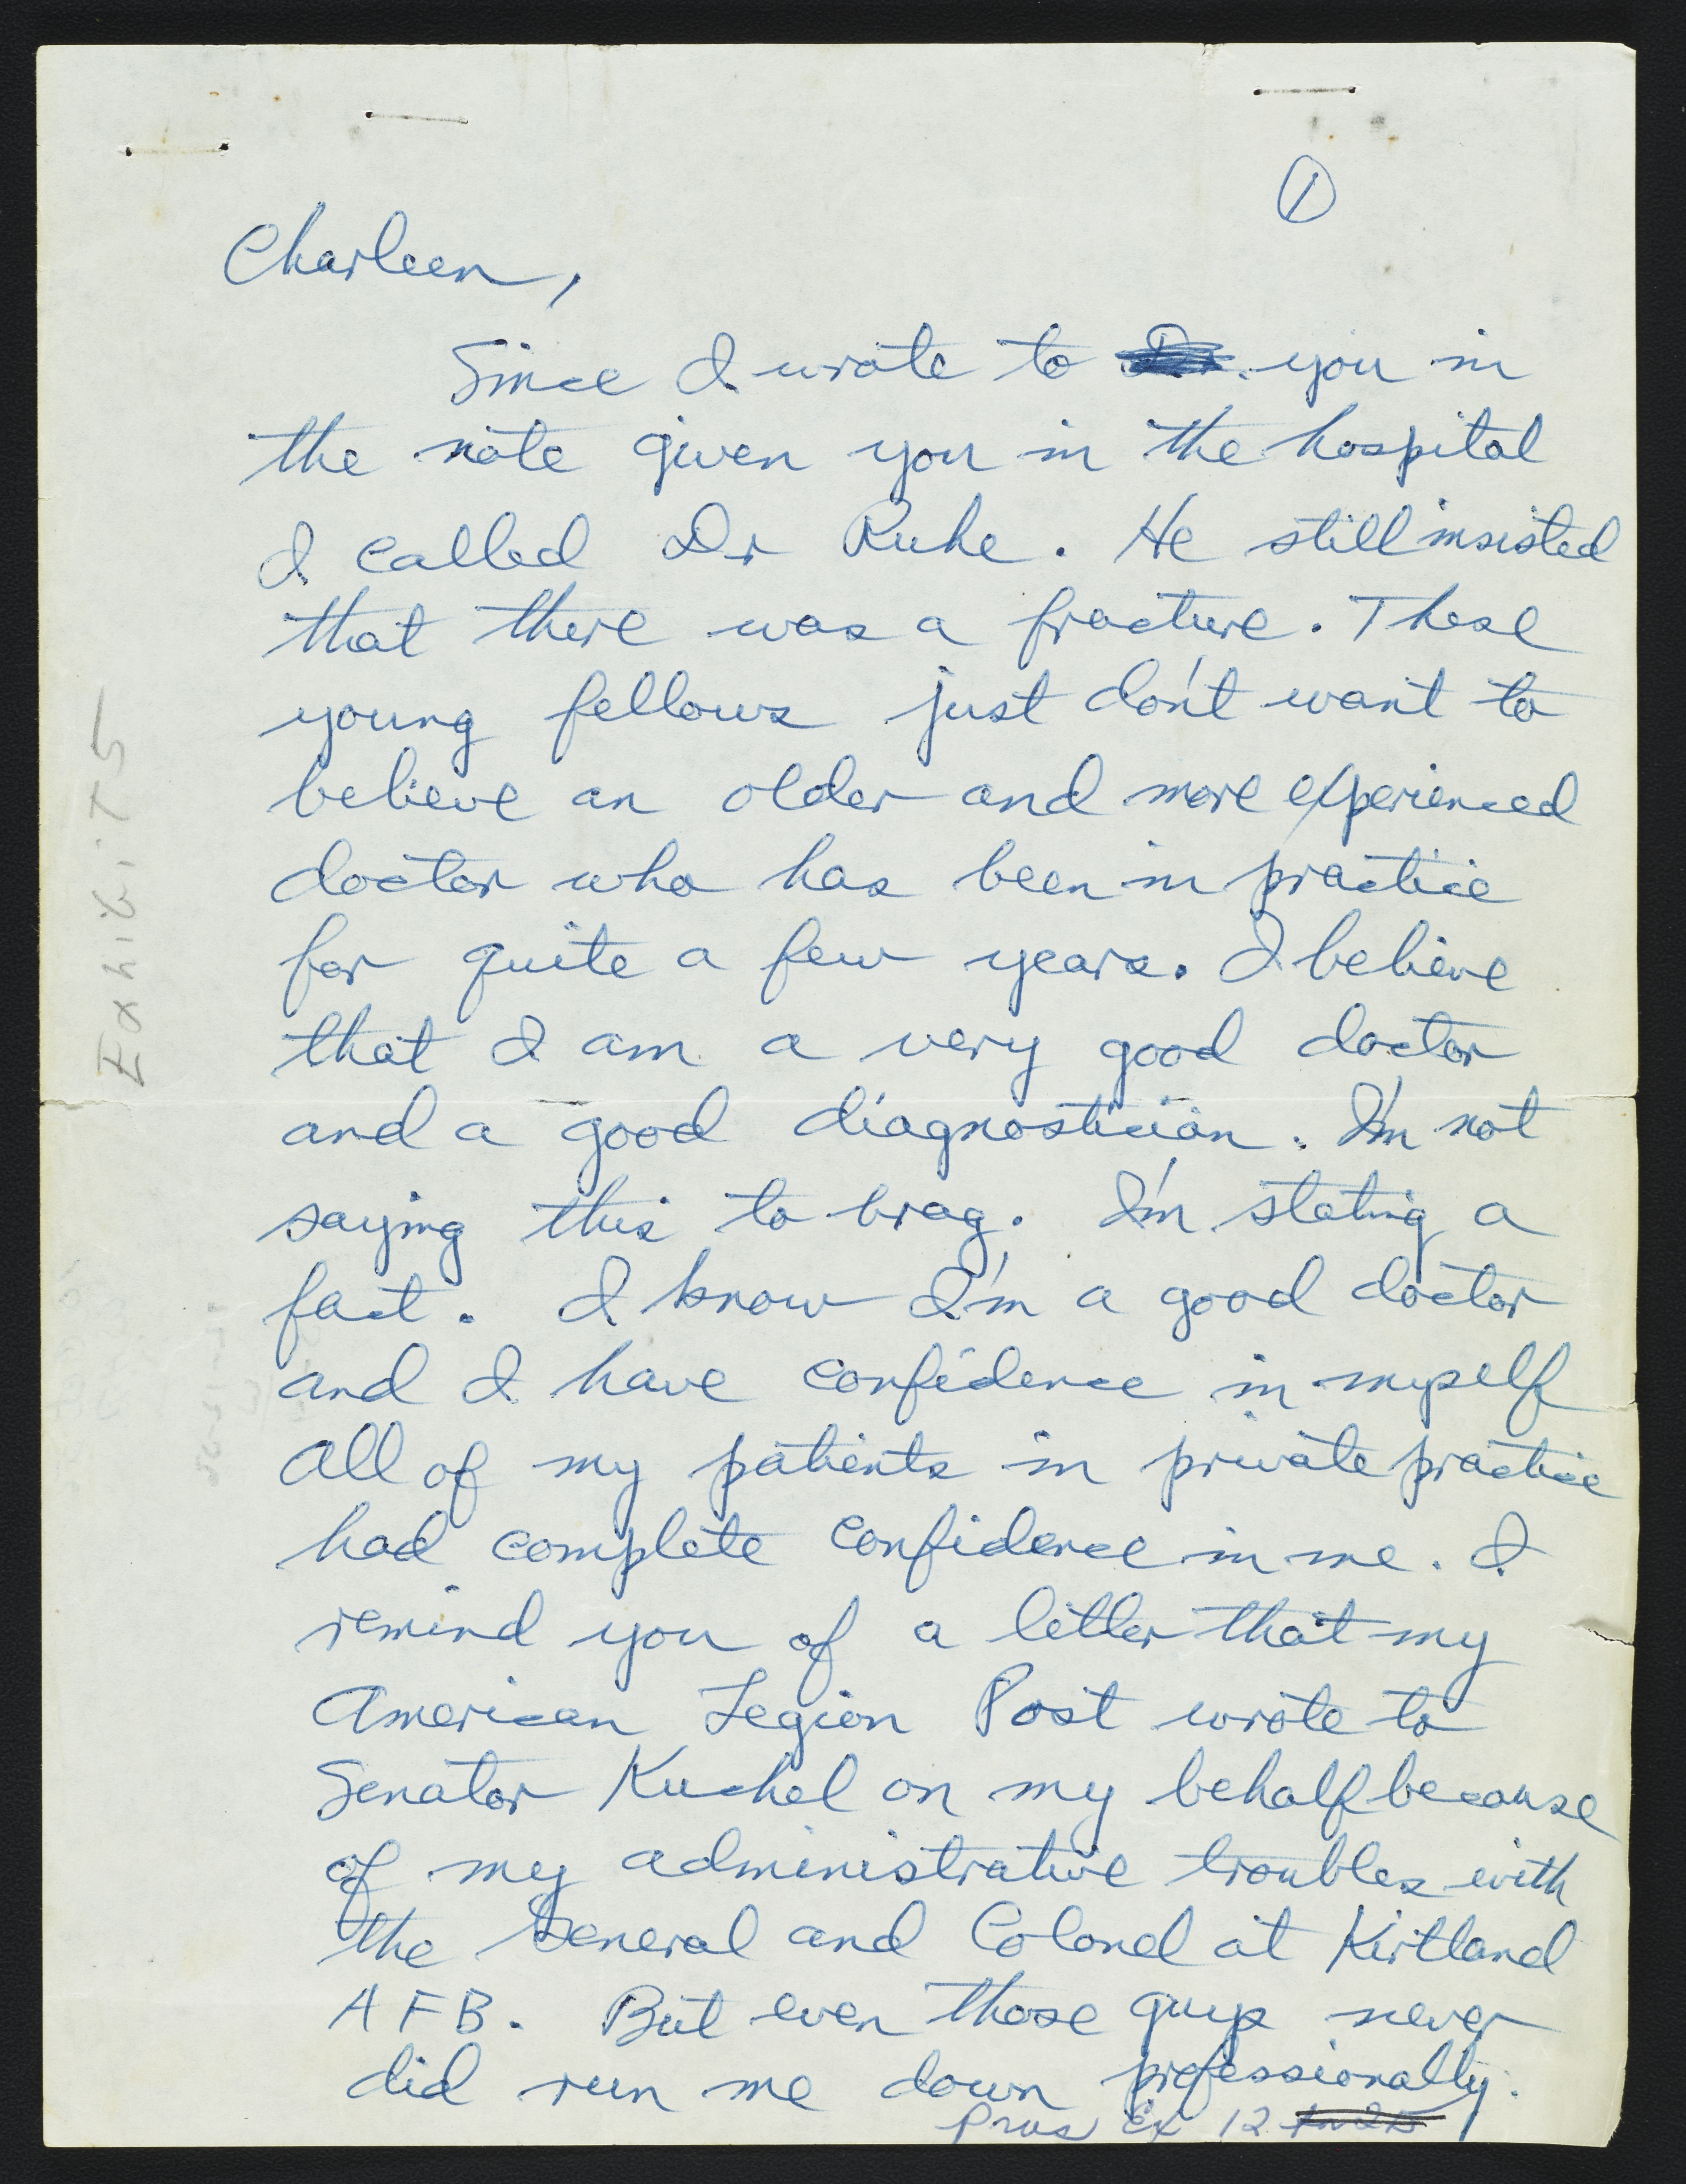 1
Charleen,
Since I wrote to Dr. you in
the note given you in the hospital
I called Dr Ruhe. He still insisted
that there was a fracture. These
young fellows just don't want to
believe an older and more experienced
doctor who has been in practice
for quite a few years. I believe
that I am a very good doctor
and a good diagnostician. I'm not
saying this to brag. I'm stating a
fact. I know I'm a good doctor
and I have confidence in myself
All of my patients in private practice
had complete confidence in me. I
remind you of a letter that my
American Legion Post wrote to
Senator Kuchel on my behalf because
of my administrative troubles with
the General and Colonel at Kirtland
AFB. But even those guys never
did run me down professionally.
Pros Ex 12
Exhibit 5